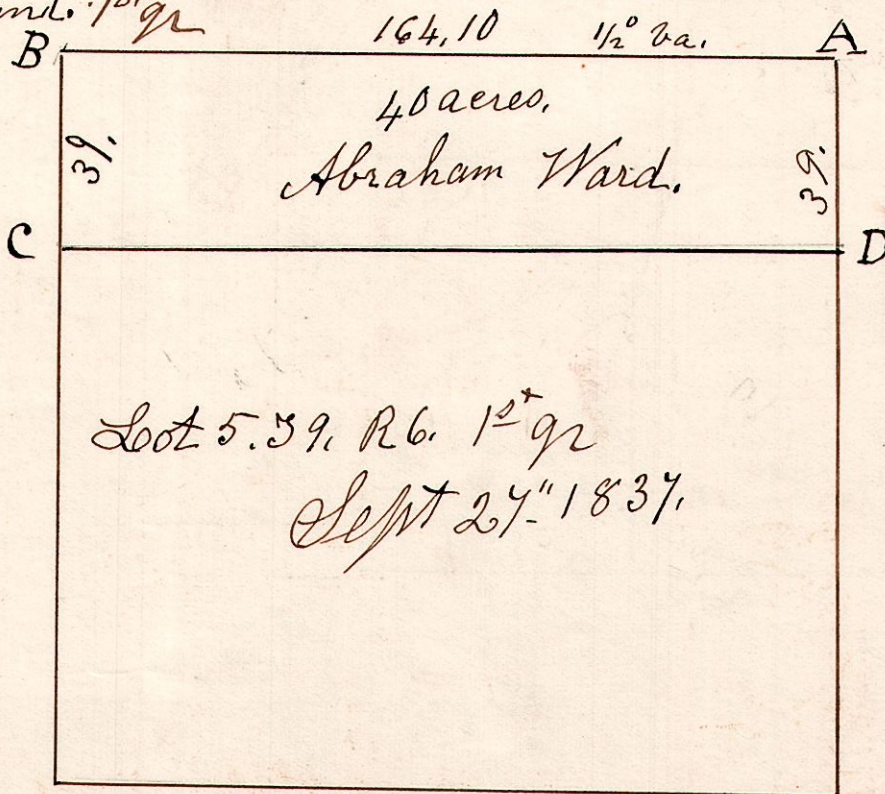 1st gr
B 164,10 1/2° va. A
40 acres.
39. Abraham Ward. 39.
C D
Lot 5. T9. R6. 1st gr
Sept 27" 1837.